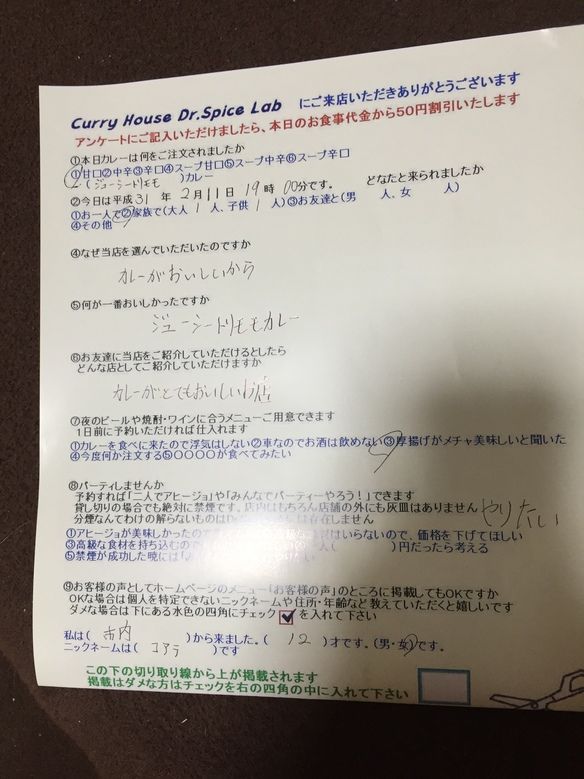 Curry House Dr.Spice Lab にご来店いただきありがとうございます
アンケートにご記入いただけましたら、本日のお食事代金から50円割引いたします
①本日カレーは何をご注文されましたか
①甘口②中辛③辛口④スープ甘口⑤スープ中辛⑥スープ辛口
(ジューシートリモモ )カレー
②今日は平成 31 年 2 月 11 日 19 時 00 分です。 どなたと来られましたか
①お一人で②家族で(大人 1 人、子供 1 人)③お友達と(男 人、女 人)
④その他
④なぜ当店を選んでいただいたのですか
カレーがおいしいから
⑤何が一番おいしかったですか
ジューシートリモモカレー
⑥お友達に当店をご紹介していただけるとしたら
どんな店としてご紹介していただけますか
カレーがとてもおいしいお店
⑦夜のビールや焼酎・ワインに合うメニューご用意できます
1日前に予約いただければ仕入れます
①カレーを食べに来たので浮気はしない②車なのでお酒は飲めない③厚揚げがメチャ美味しいと聞いた
④今度何か注文する⑤〇〇〇〇が食べてみたい
⑧パーティしませんか
予約すれば「二人でアヒージョ」や「みんなでパーティーやろう!」できます
貸し切りの場合でも絶対に禁煙です。店内はもちろん店舗の外にも灰皿はありません
やりたい
分煙なんてわけの解らないものは は存在しません
①アヒージョが美味しかったので はいらないので、価格を下げてほしい
③高級な食材を持ち込むので 人( )円だったら考える
⑤禁煙が成功した暁には
⑨お客様の声としてホームページのメニュー「お客様の声」のところに掲載してもOKですか
OKな場合は個人を特定できないニックネームや住所・年齢など教えていただくと嬉しいです
ダメな場合は下にある水色の四角にチェック ☑ を入れて下さい
私は( 市内 )から来ました。( 12 )才です。(男・女)です。
ニックネームは( コアラ )です
この下の切り取り線から上が掲載されます
掲載はダメな方はチェックを右の四角の中に入れて下さい